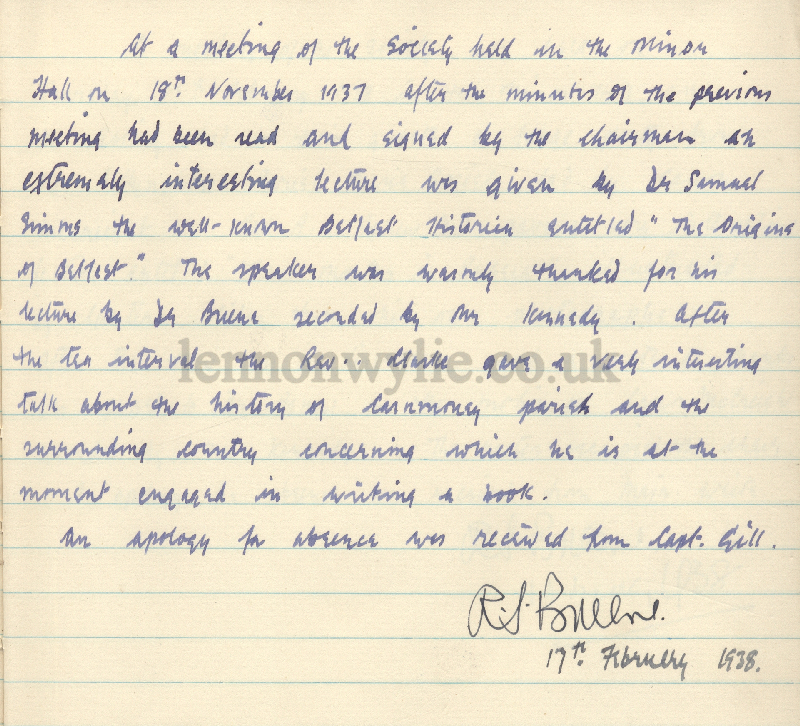 At a meeting of the Society held in the Minor
Hall on 18th November 1937 after the minutes of the previous
meeting had been read and signed by the chairman an
extremely interesting lecture was given by Dr Samuel
Simms the well-known Belfast Historian entitled "The Origins
of Belfast." The speaker was warmly thanked for his
lecture by Dr Breene seconded by Mr Kennedy. After
the tea interval the Rev. Clarke gave a very interesting
talk about the history of Carnmoney parish and the
surrounding country concerning which he is at the
moment engaged in writing a book.
An apology for absence was received from Capt. Gill.
R.S. Breene.
17th February 1938.
lennonwylie.co.uk